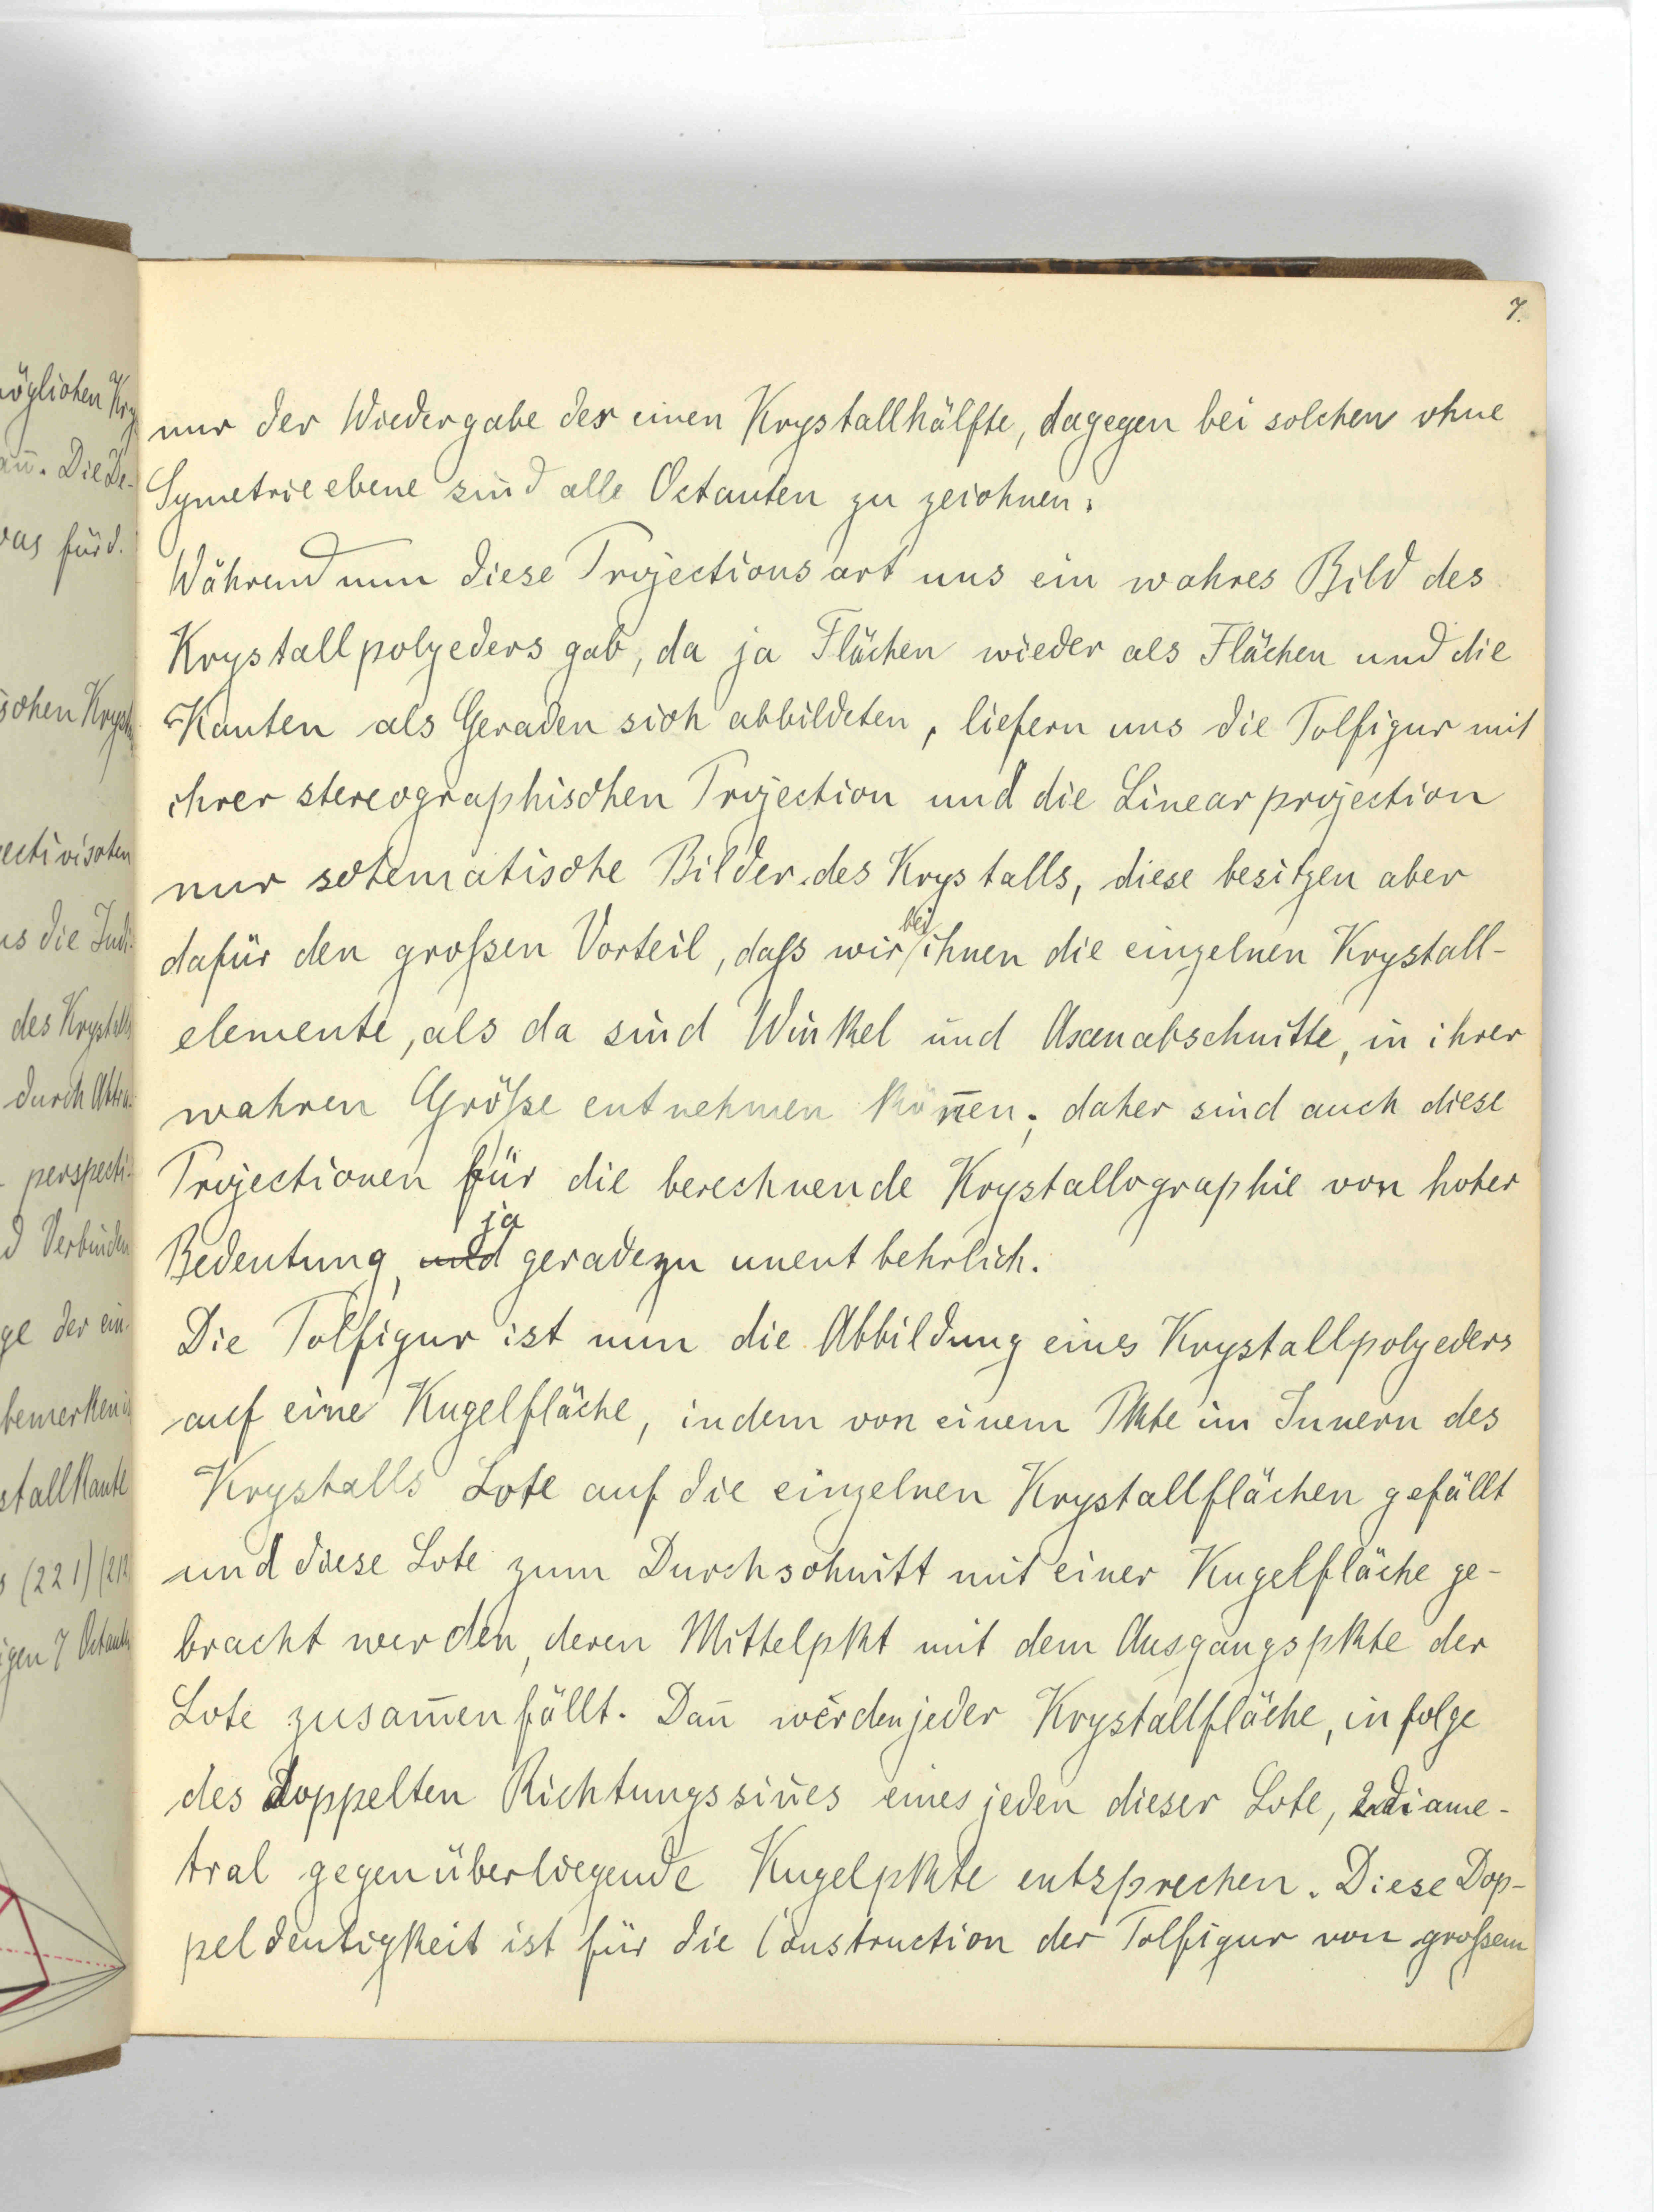 7.
nur der Wiedergabe der einen Krystallhälfte, dagegen bei solchen ohne
Symetrieebene sind alle Octanten zu zeichnen.
Während nun diese Projectionsart uns ein wahres Bild des
Krystallpolyeders gab, da ja Flächen wieder als Flächen und die
Kanten als Geraden sich abbildeten, liefern uns die Polfigur mit
ihrer stereographischen Projection und die Linearprojection
nur schematische Bilder des Krystalls, diese besitzen aber
dafür den großen Vorteil, daß wir bei ihnen die einzelnen Krystall-
elemente, als da sind Winkel und Axenabschnitte, in ihrer
wahren Größe entnehmen kön̄en; daher sind auch diese
Projectionen für die berechnende Krystallographie von hoher
Bedeutung, und ja geradezu unentbehrlich.
Die Polfigur ist nun die Abbildung eines Krystallpolyeders
auf eine Kugelfläche, indem von einem Pkte im Innern des
Krystalls Lote auf die einzelnen Krystallflächen gefällt
und diese Lote zum Durchschnitt mit einer Kugelfläche ge-
bracht werden, deren Mittelpkt mit dem Ausgangspkte der
Lote zusam̄enfällt. Dan̄ werden jeder Krystallfläche, infolge
des doppelten Richtungssin̄es eines jeden dieser Lote, 2 diame-
tral gegenüberliegende Kugelpkte entsprechen. Diese Dop-
peldeutigkeit ist für die Construction der Polfigur von großem
öglichen Kry
an̄. Die De-
as für d.
schen Kryst
ectivischen
s die Indi-
des Krystalls
durch Abtra-
perspecti-
d Verbinden
ge der ein-
bemerken is
stallkante
s (221) (212
igen 7 Octanten